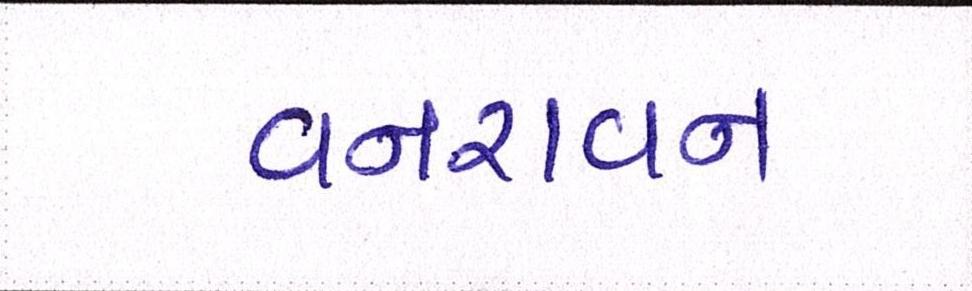 વનરાવન